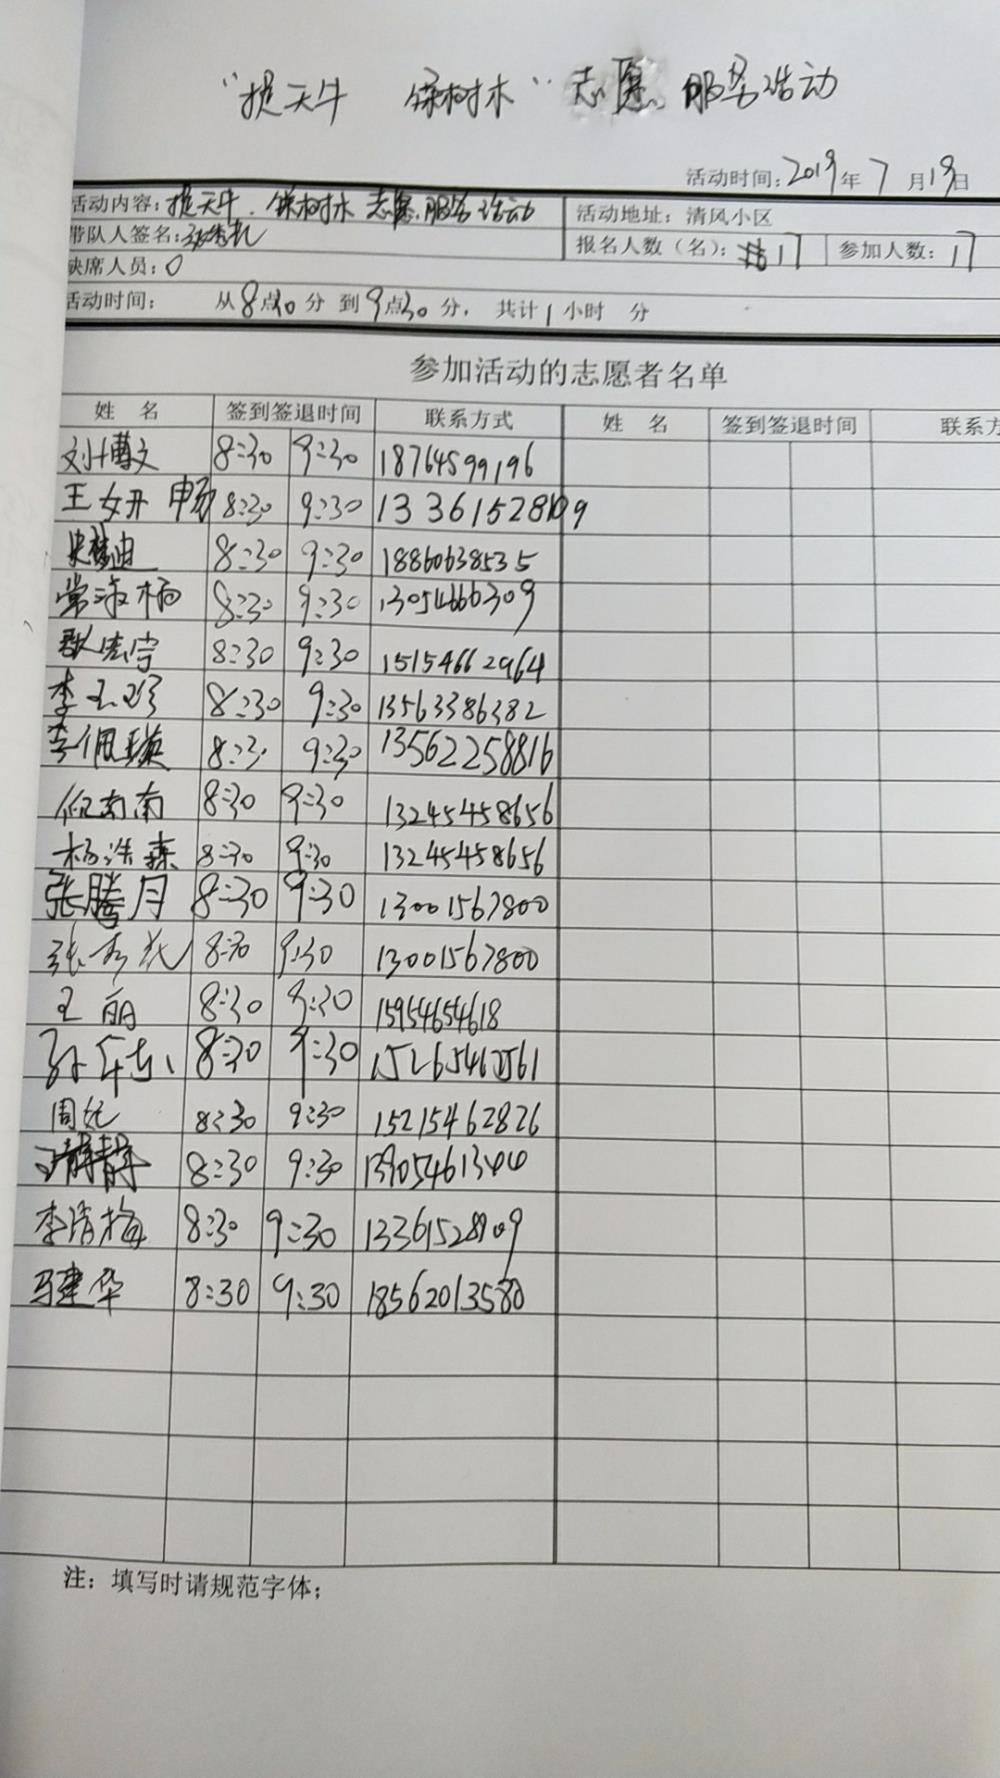 "捉天牛 保树木"志愿服务活动
活动时间：2019年7月19日
活动内容：捉天牛、保树木志愿服务活动 活动地址：清风小区
带队人签名： 报名人数（名）：17 参加人数：17
缺席人员：0
活动时间： 从8点30分 到9点30分， 共计1小时 分
参加活动的志愿者名单
姓 名 签到签退时间 联系方式 姓 名 签到签退时间 联系方
刘博文 8:30 9:30 18764599196
王妍 8:30 9:30
8:30 9:30 18860638535
常淑杨 8:30 9:30 13054666309
8:30 9:30 15154662964
李玉珍 8:30 9:30 13563386382
李佩璇 8:30 9:30 13562258816
南南 8:30 9:30 13245458656
杨浩森 8:30 9:30 13245458656
张腾月 8:30 9:30 13001567800
张秀花 8:30 9:30 13001567800
王丽 8:30 9:30 15954654618
8:30 9:30
周 8:30 9:30 15215462826
静静 8:30 9:30 13905461344
李清梅 8:30 9:30 13361528909
马建华 8:30 9:30 18562013580
注：填写时请规范字体；